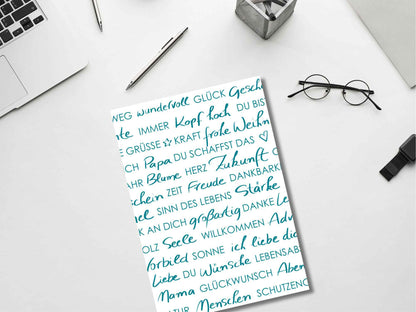 WEG wundervoll GLÜCK Gesche
te IMMER Kopf hoch DU BIS
E GRÜSSE ☆ KRAFT frohe Weihn
CH Papa DU SCHAFFST DAS ♡
AHR Blume HERZ Zukunft G
schein ZEIT Freude DANKBARK
el SINN DES LEBENS Stärke
K AN DICH großartig DANKE Le
OLZ Seele WILLKOMMEN Adv
Vorbild SONNE ich liebe dic
Liebe DU Wünsche LEBENSAB
Mama GLÜCKWUNSCH Aben
ATUR Menschen SCHUTZENG